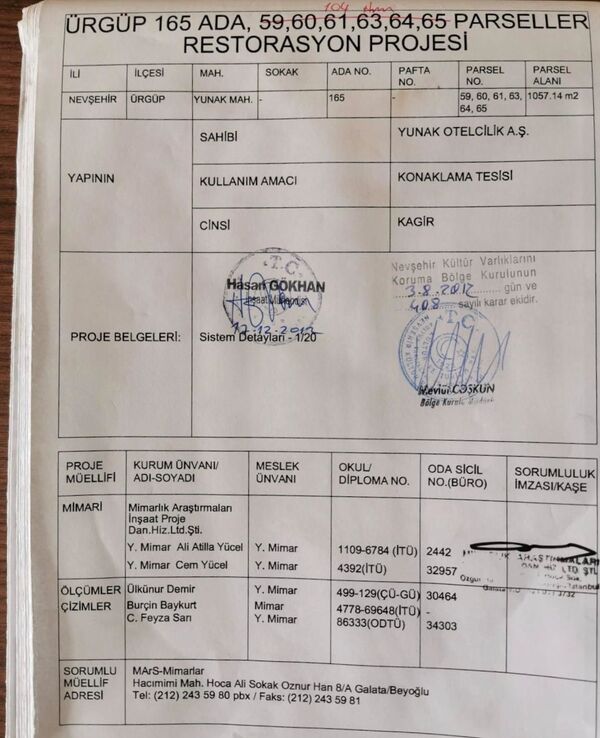 104 
ÜRGÜP 165 ADA, 59,60,61,63,64,65 PARSELLER
RESTORASYON PROJESİ
İLİ İLÇESİ MAH. SOKAK ADA NO. PAFTA NO. PARSEL NO. PARSEL ALANI
NEVŞEHİR ÜRGÜP YUNAK MAH. - 165 - 59, 60, 61, 63, 64, 65 1057.14 m2
YAPININ
SAHİBİ YUNAK OTELCİLİK A.Ş.
KULLANIM AMACI KONAKLAMA TESİSİ
CİNSİ KAGİR
PROJE BELGELERİ: Sistem Detayları - 1/20
T.C.
Hasan GÖKHAN
İnşaat Mühendisi
17.12.2012
Nevşehir Kültür Varlıklarını
Koruma Bölge Kurulunun
3.8.2012 gün ve
408 sayılı karar ekidir.
T.C.
Mevlüt COŞKUN
Bölge Kurulu
PROJE MÜELLİFİ KURUM ÜNVANI/ ADI-SOYADI MESLEK ÜNVANI OKUL/ DİPLOMA NO. ODA SİCİL NO.(BÜRO) SORUMLULUK İMZASI/KAŞE
MİMARİ Mimarlık Araştırmaları
İnşaat Proje
Dan.Hiz.Ltd.Şti.
Y. Mimar Ali Atilla Yücel Y. Mimar 1109-6784 (İTÜ) 2442
Y. Mimar Cem Yücel Y. Mimar 4392(İTÜ) 32957
ARAŞTIRMALARI
DAN HİZ LTD. ŞTİ.
ÖLÇÜMLER Ülkünur Demir Y. Mimar 499-129(ÇÜ-GÜ) 30464
ÇİZİMLER Burçin Baykurt Mimar 4778-69648(İTÜ) -
C. Feyza Sarı Y. Mimar 86333(ODTÜ) 34303
SORUMLU MÜELLİF ADRESİ
MArS-Mimarlar
Hacımimi Mah. Hoca Ali Sokak Oznur Han 8/A Galata/Beyoğlu
Tel: (212) 243 59 80 pbx / Faks: (212) 243 59 81